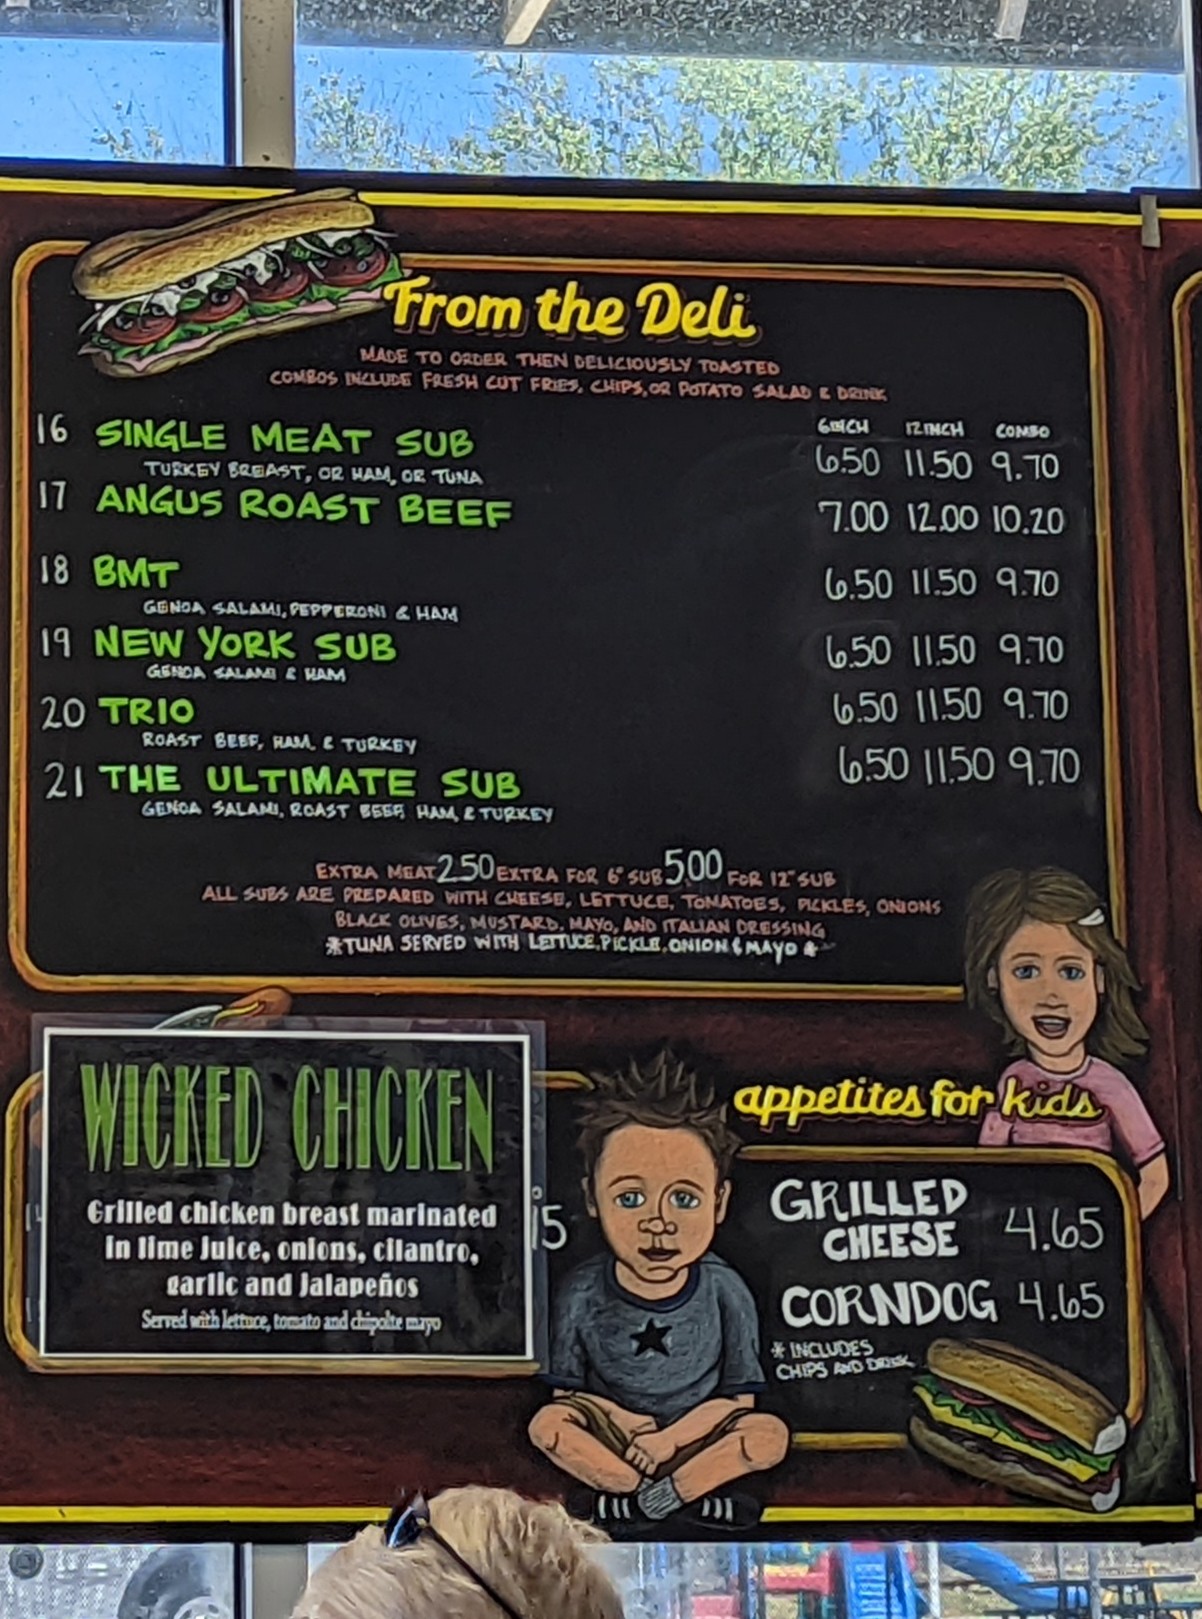 From the Deli
MADE TO ORDER THEN DELICIOUSLY TOASTED
COMBOS INCLUDE FRESH CUT FRIES, CHIPS, OR POTATO SALAD & DRINK
6INCH 12INCH COMBO
16 SINGLE MEAT SUB 6.50 11.50 9.70
TURKEY BREAST, OR HAM, OR TUNA
17 ANGUS ROAST BEEF 7.00 12.00 10.20
18 BMT 6.50 11.50 9.70
GENOA SALAMI, PEPPERONI & HAM
19 NEW YORK SUB 6.50 11.50 9.70
GENOA SALAMI & HAM
20 TRIO 6.50 11.50 9.70
ROAST BEEF, HAM, & TURKEY
21 THE ULTIMATE SUB 6.50 11.50 9.70
GENOA SALAMI, ROAST BEEF, HAM, & TURKEY
EXTRA MEAT 2.50 EXTRA FOR 6" SUB 5.00 FOR 12" SUB
ALL SUBS ARE PREPARED WITH CHEESE, LETTUCE, TOMATOES, PICKLES, ONIONS
BLACK OLIVES, MUSTARD, MAYO, AND ITALIAN DRESSING
*TUNA SERVED WITH LETTUCE, PICKLE, ONION & MAYO *
WICKED CHICKEN
Grilled chicken breast marinated
in lime juice, onions, cilantro,
garlic and jalapeños
Served with lettuce, tomato and chipolte mayo
appetites for kids
GRILLED
CHEESE 4.65
CORNDOG 4.65
* INCLUDES
CHIPS AND DRINK